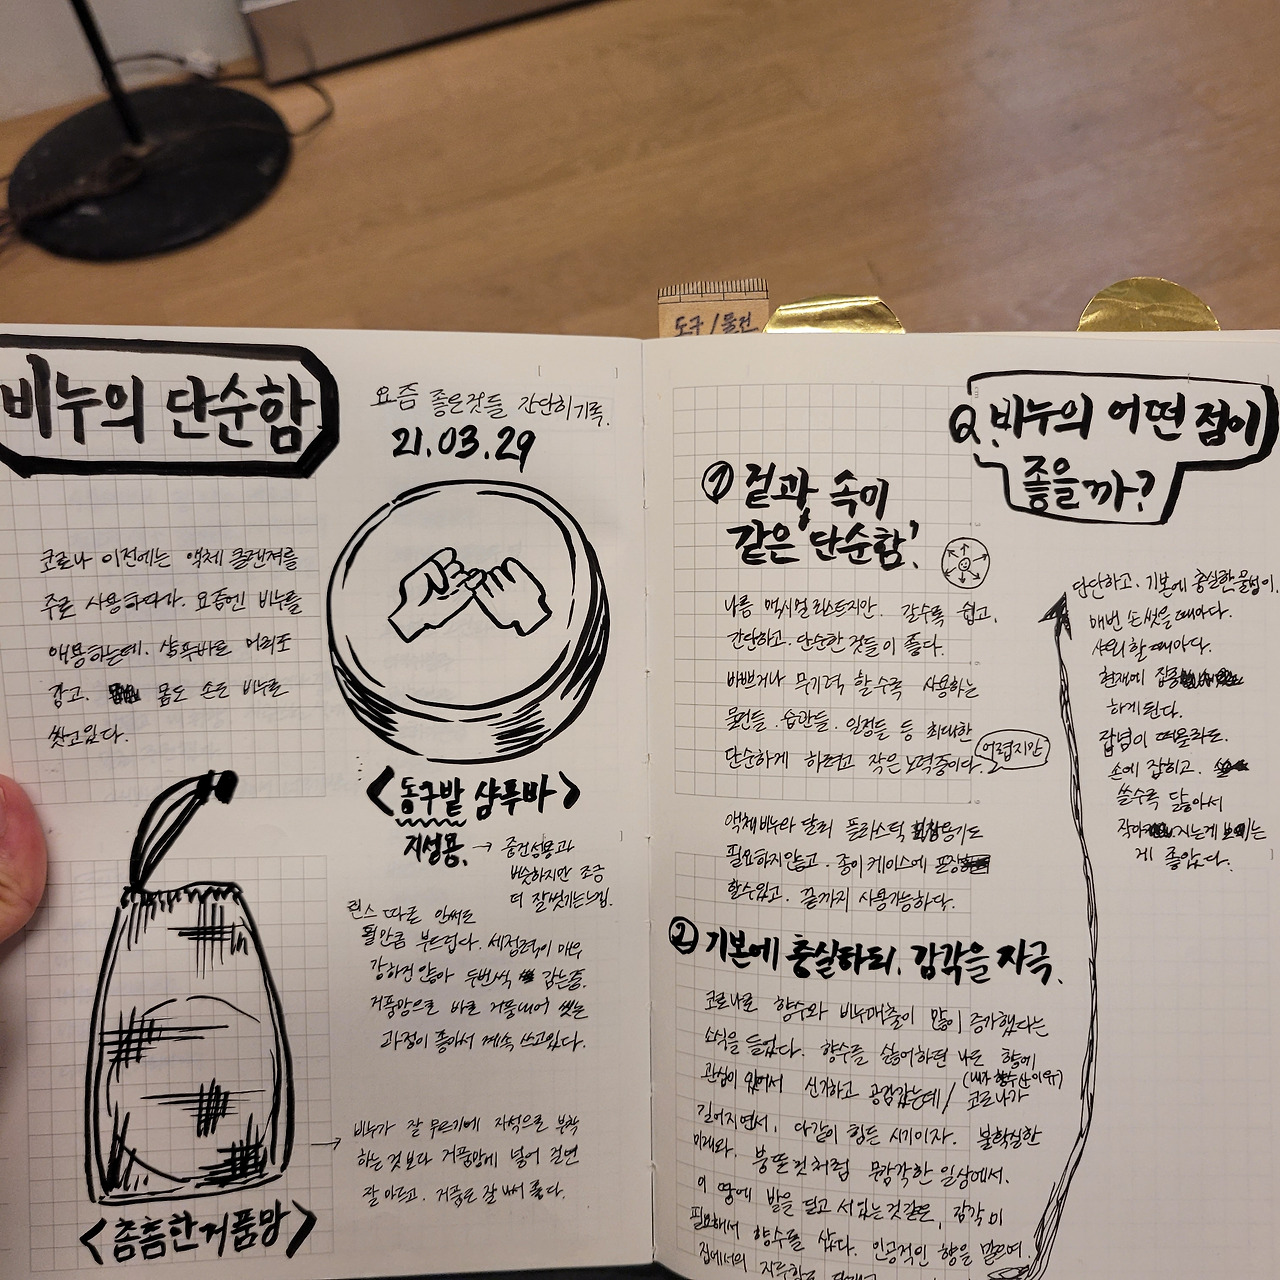 도구/물건
비누의 단순함
요즘 좋은것들 간단히기록.
21.03.29
코로나 이전에는 액체 클랜져를
주로 사용하다가. 요즘엔 비누를
애용하는데. 샴푸바로 머리도
감고. 몸도 손도 비누로
씻고있다.
<동구밭 샴푸바>
지성용. → 중건성용과
비슷하지만 조금
더 잘씻기는느낌.
린스 따로 안써도
될만큼 부드럽다. 세정력이 매우
강하진 않아 두번씩 감는중.
거품망으로 바로 거품내어 씻는
과정이 좋아서 계속 쓰고있다.
→ 비누가 잘 무르기에 자석으로 부착
하는것보다 거품망에 넣어 걸면
잘 마르고. 거품도 잘 나서 좋다.
<촘촘한거품망>
Q. 비누의 어떤 점이
좋을까?
① 겉과 속이
같은 '단순함'.
나름 맥시멀리스트지만. 갈수록 쉽고,
간단하고. 단순한 것들이 좋다.
바쁘거나 무기력 할수록 사용하는
물건들. 습관들. 일정들 등 최대한
단순하게 하려고 작은 노력중이다.
어렵지만
액체비누와 달리 플라스틱 용기도
필요하지않고. 종이 케이스에 포장
할수있고. 끝까지 사용가능하다.
② 기본에 충실하되. 감각을 자극.
코로나로 향수와 비누매출이 많이 증가했다는
소식을 들었다. 향수를 싫어하던 나도 향에
관심이 있어서 신기하고 공감갔는데/ 코로나가
(내가 향수산이유)
길어지면서, 다같이 힘든 시기이자. 불확실한
미래와. 붕뜬것처럼 무감각한 일상에서.
이 땅에 발을 딛고 서있는것같은, 감각이
필요해서 향수를 샀다. 인공적인 향을 맡으며.
집에서의
단단하고. 기본에 충실한물성이.
매번 손 씻을때마다.
샤워할때마다.
현재에 집중
하게된다.
잡념이 떠올라도.
손에 잡히고.
쓸수록 닳아서
작아지는게 보이는
게 좋았다.